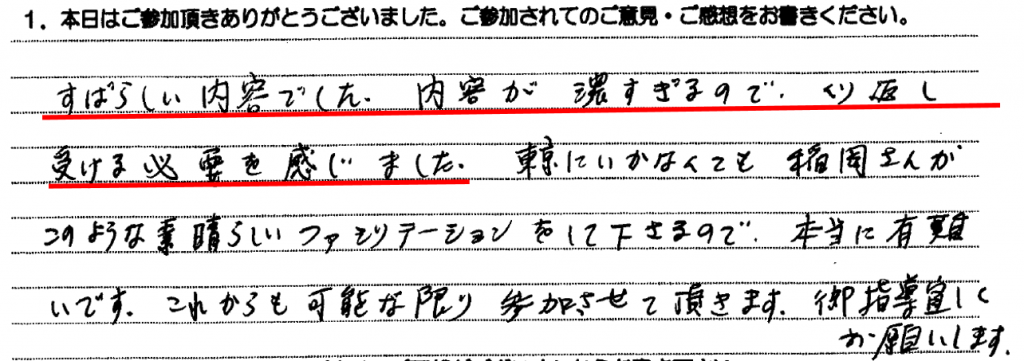 1. 本日はご参加頂きありがとうございました。ご参加されてのご意見・ご感想をお書きください。
すばらしい内容でした. 内容が 濃すぎるので. くり返し
受ける必要を感じました. 東京にいかなくても 稲岡さんが
このような素晴らしいファシリテーションをして下さるので. 本当に有難
いです. これからも可能な限り 参加させて頂きます. 御指導宜しく
お願いします.